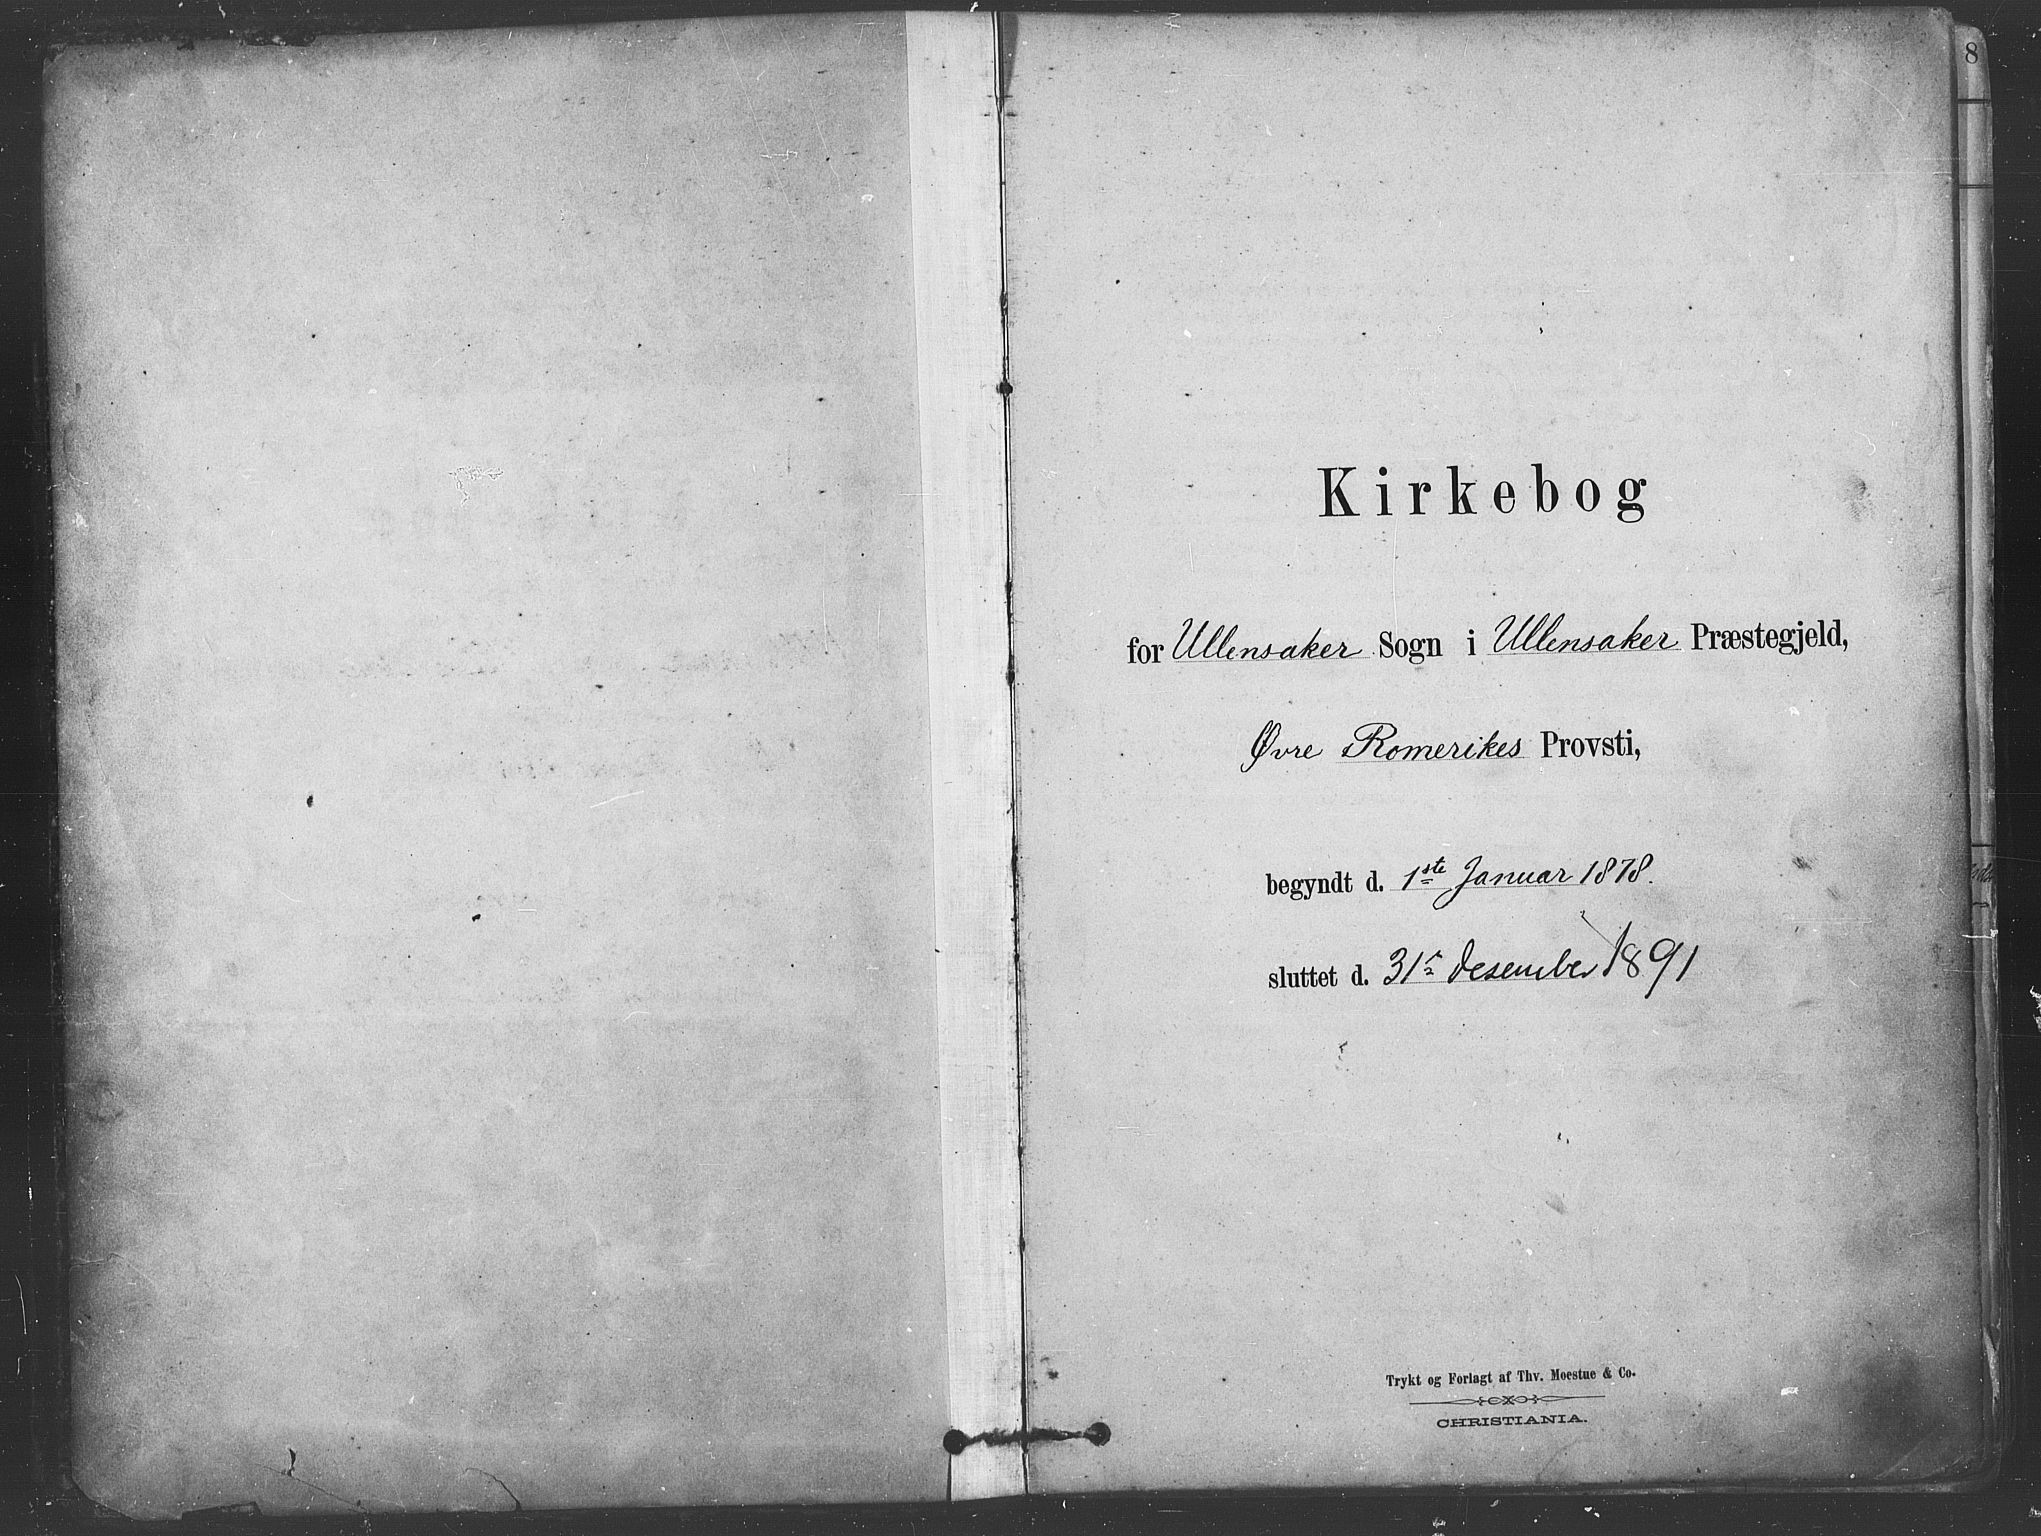 Kirkebog
for Ullensaker Sogn i Ullensaker Præstegjeld,
Øvre Romerikes Provsti,
begyndt d. 1ste Januar 1878.
sluttet d. 31 desember 1891
Trykt og Forlagt af Thv. Moestue & Co.
CHRISTIANIA.
8